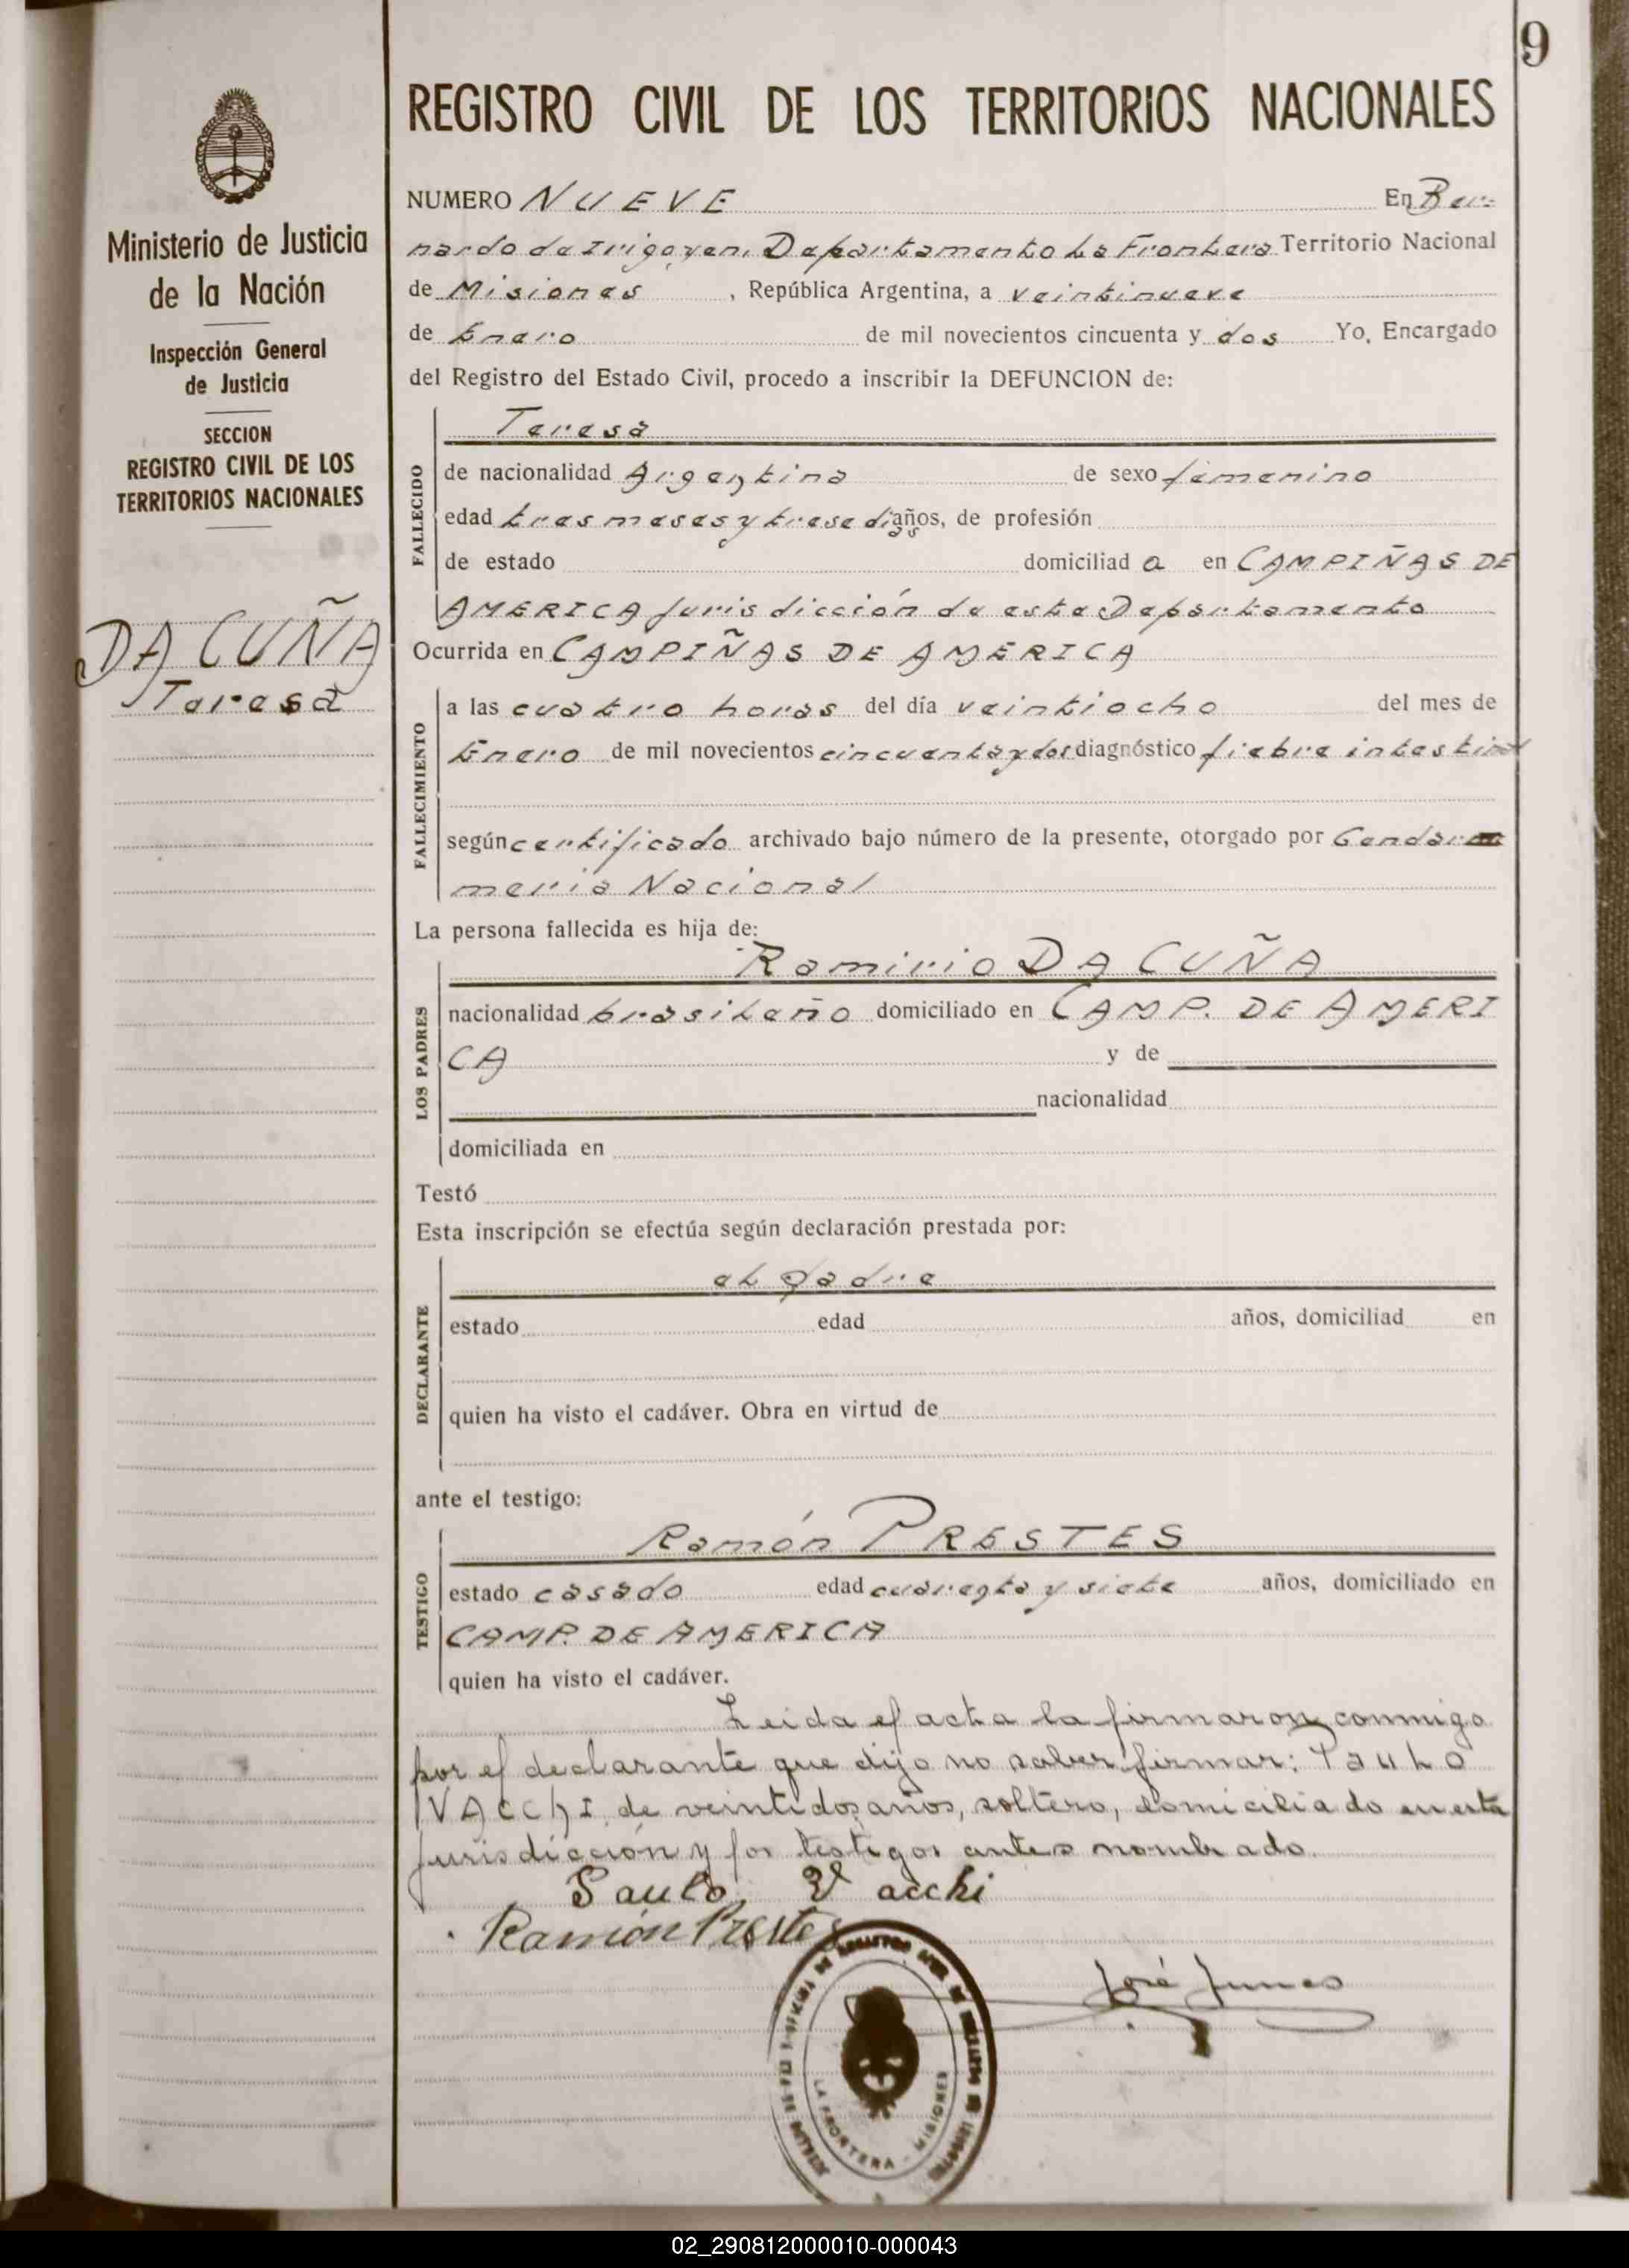 9
REGISTRO CIVIL DE LOS TERRITORIOS NACIONALES
Ministerio de Justicia
de la Nación
Inspección General
de Justicia
SECCION
REGISTRO CIVIL DE LOS
TERRITORIOS NACIONALES
DA CUÑA
Teresa
NUMERO NUEVE En Ber-
nardo de Irigoyen, Departamento La Frontera Territorio Nacional
de Misiones , República Argentina, a veintinueve
de Enero de mil novecientos cincuenta y dos Yo, Encargado
del Registro del Estado Civil, procedo a inscribir la DEFUNCION de:
FALLECIDO
Teresa
de nacionalidad Argentina de sexo femenino
edad tres meses y trese días años, de profesión
de estado domiciliad a en CAMPIÑAS DE
AMERICA jurisdicción de este Departamento
Ocurrida en CAMPIÑAS DE AMERICA
FALLECIMIENTO
a las cuatro horas del día veintiocho del mes de
Enero de mil novecientos cincuenta y dos diagnóstico fiebre intestinal
según certificado archivado bajo número de la presente, otorgado por Gendar
meria Nacional
La persona fallecida es hija de:
LOS PADRES
Ramirio DA CUÑA
nacionalidad brasileño domiciliado en CAMP. DE AMERI
CA y de
nacionalidad
domiciliada en
Testó
Esta inscripción se efectúa según declaración prestada por:
DECLARANTE
el padre
estado edad años, domiciliad en
quien ha visto el cadáver. Obra en virtud de
ante el testigo:
TESTIGO
Ramón PRESTES
estado casado edad cuarenta y siete años, domiciliado en
CAMP. DE AMERICA
quien ha visto el cadáver.
Leida el acta la firmaron conmigo
por el declarante que dijo no saber firmar: Paulo
VACCHI de veintidos años, soltero, domiciliado en esta
jurisdicción y los testigos antes nombrado.
Paulo Vacchi
Ramón Prestes
José Junes
LA FRONTERA - MISIONES
02_290812000010-000043